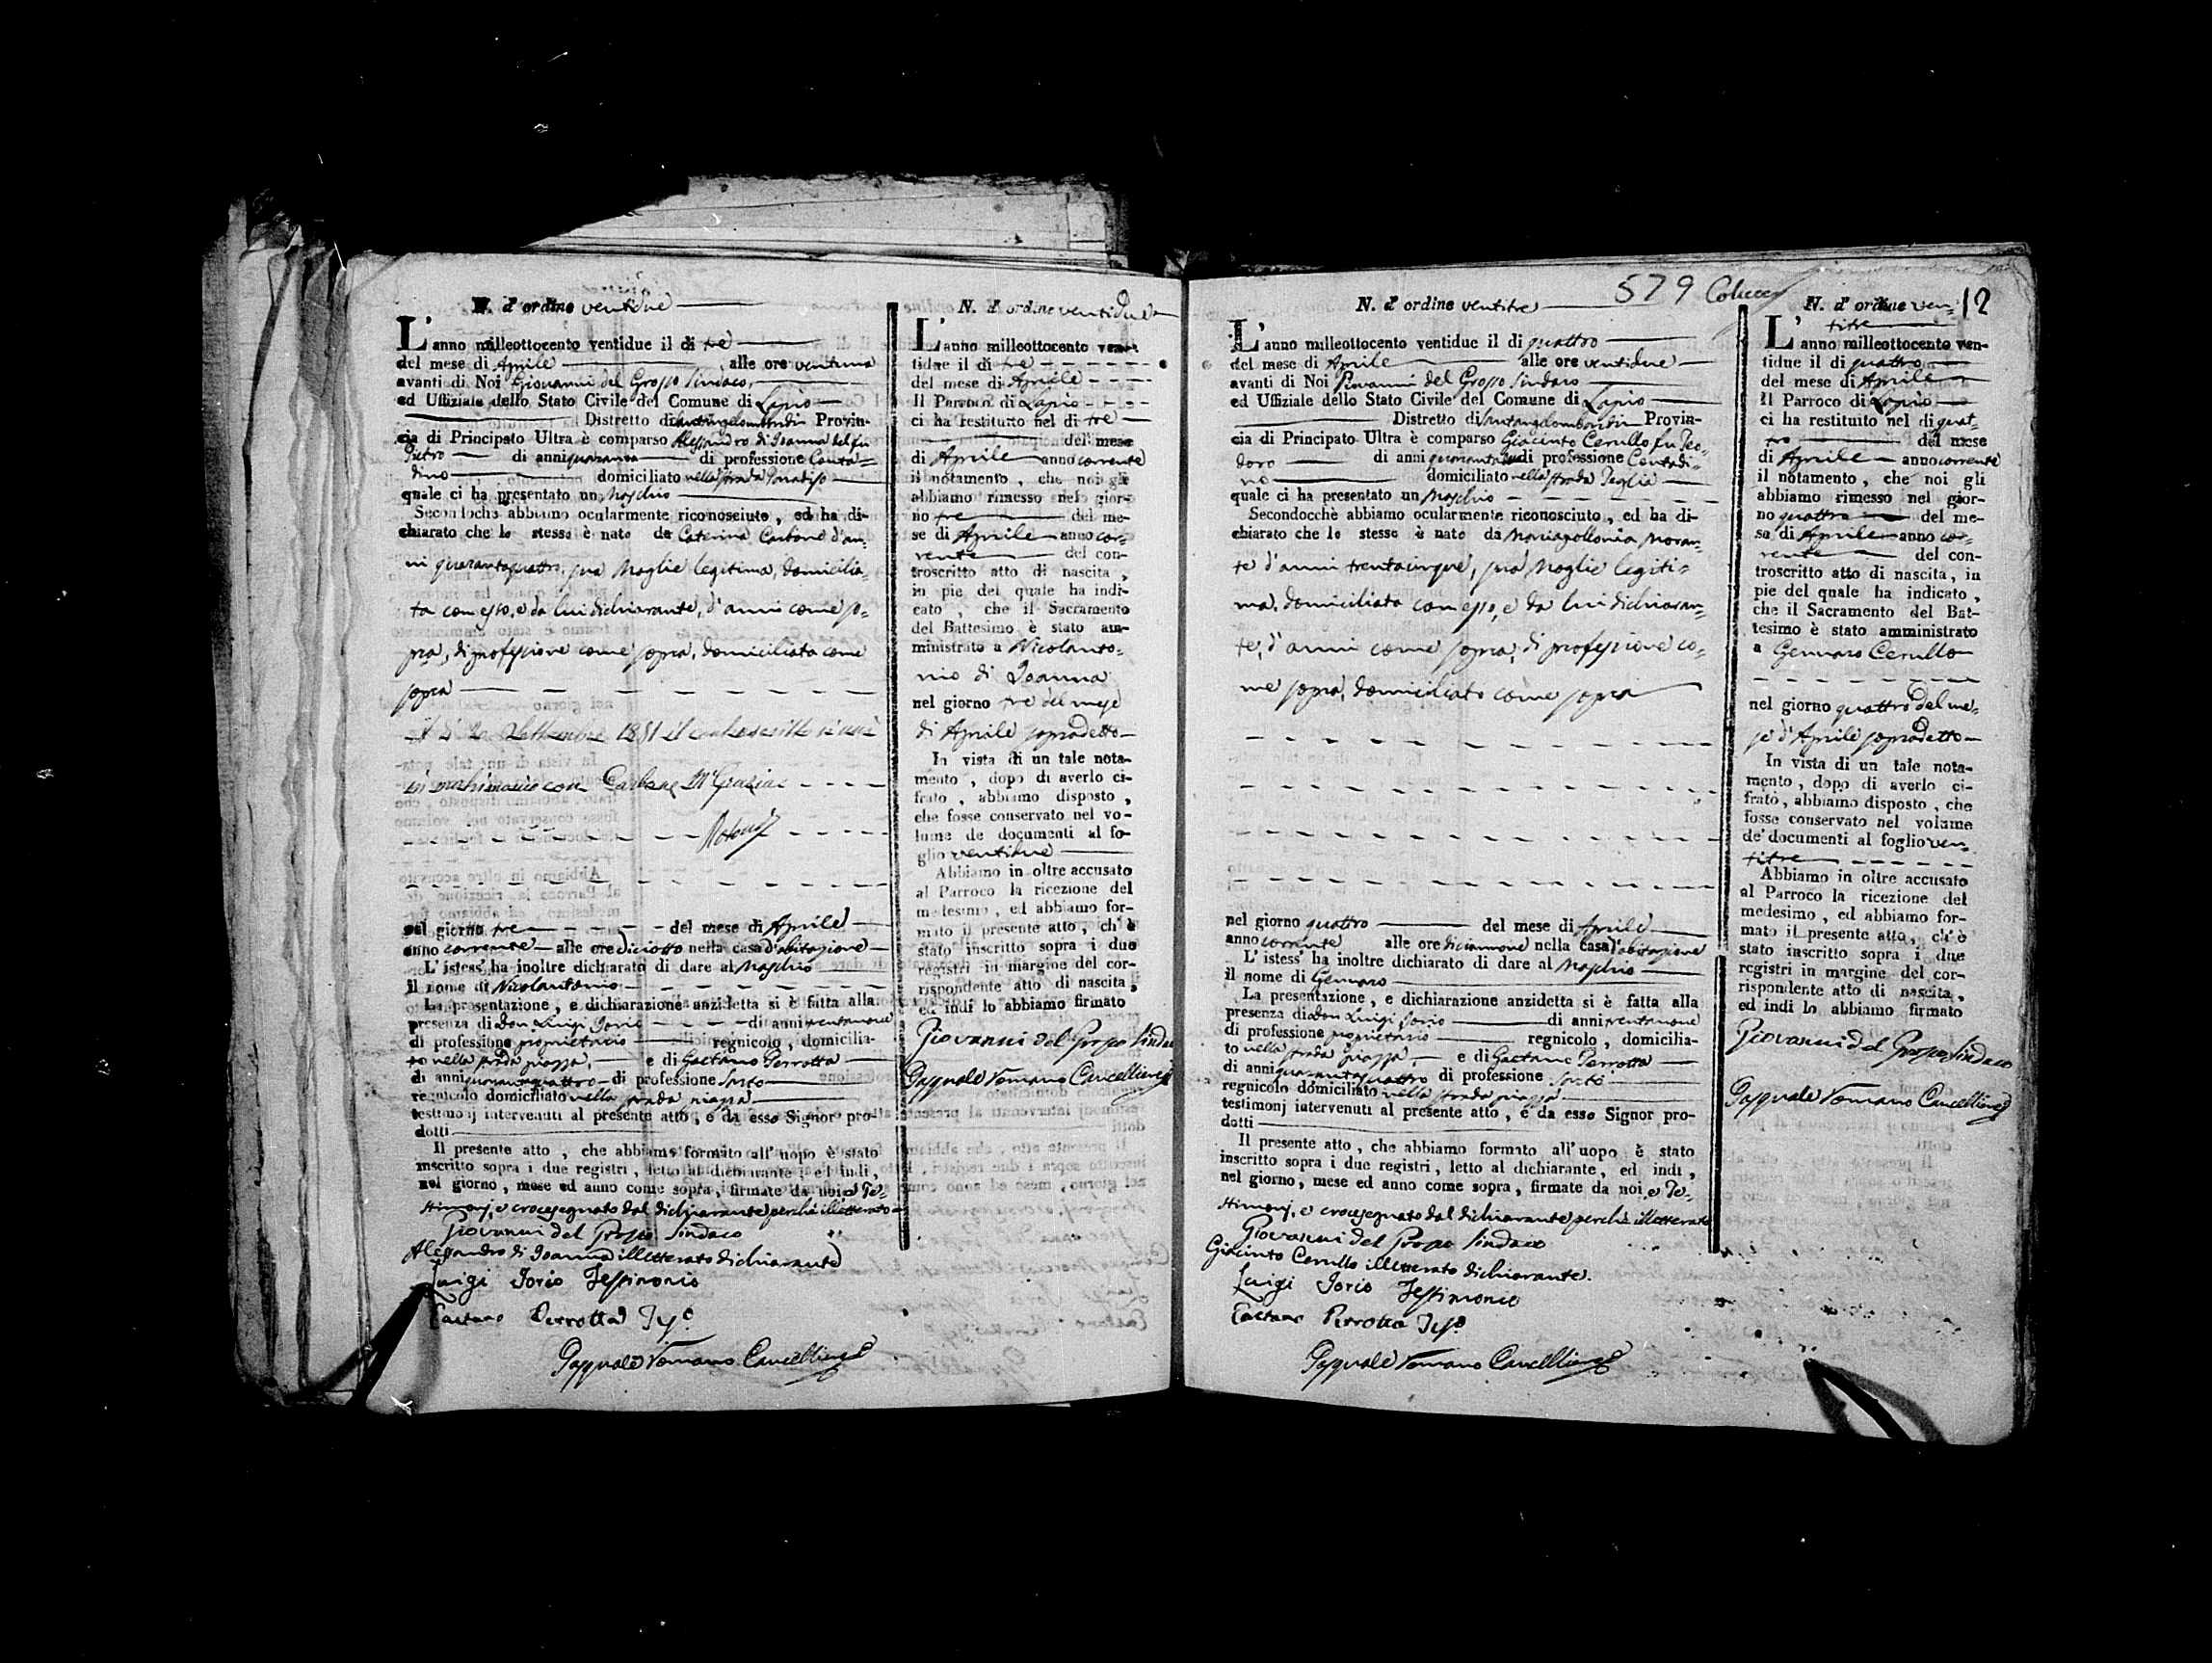 N. d' ordine ventidue
L' anno milleottocento ventidue il di tre
del mese di Aprile alle ore ventuna
avanti di Noi Giovanni del Grosso Sindaco,
ed Uffiziale dello Stato Civile del Comune di Lapio
Distretto di Santangelombardi Provin-
cia di Principato Ultra è comparso Alessandro di Joanna del fu
Pietro di anni quaranta di professione Conta=
dino domiciliato nella strada Paradiso
quale ci ha presentato un Maschio
Secondochè abbiamo ocularmente riconosciuto, ed ha di-
chiarato che lo stesso è nato da Caterina Carbone d'an-
ni quarantaquattro, sua Moglie legitima, domicilia-
ta con esso, e da lui dichiarante, d'anni come so-
pra, di professione come sopra, domiciliata come
sopra
Settembre 1851 il controscritto si unì
in matrimonio con Carbone Mª Grazia
nel giorno tre del mese di Aprile
anno corrente alle ore diciotto nella casa d'abitazione
L' istess' ha inoltre dichiarato di dare al Maschio
il nome di Nicolantonio
La presentazione, e dichiarazione anzidetta si è fatta alla
presenza di Don Luigi Jorio di anni trentanove
di professione proprietario regnicolo, domicilia-
to nella strada piazza, e di Gaetano Perrotta
di anni quarantaquattro di professione Sarto
regnicolo domiciliato nella strada piazza
testimonj intervenuti al presente atto, e da esso Signor pro-
dotti
Il presente atto, che abbiamo formato all' uopo è stato
inscritto sopra i due registri, letto al dichiarante, ed indi,
nel giorno, mese ed anno come sopra, firmate da noi, e Te-
stimonj, e crocesegnato dal dichiarante perchè illetterato
Giovanni del Grosso Sindaco
Alesandro di Joanna illetterato dichiarante
Luigi Jorio Testimonio
Caetano Perrotta Tes.º
Pasquale Romano Cancelliere
N. d' ordine ventidue
L' anno milleottocento ven-
tidue il di tre
del mese di Aprile
Il Parroco di Lapio
ci ha restituito nel di tre
del mese
di Aprile anno corrente
il notamento, che noi gli
abbiamo rimesso nel gior-
no tre del me-
se di Aprile anno cor-
rente del con-
troscritto atto di nascita,
in piè del quale ha indi-
cato, che il Sacramento
del Battesimo è stato am-
ministrato a Nicolanto-
nio di Joanna
nel giorno tre del mese
di Aprile sopradetto
In vista di un tale nota-
mento, dopo di averlo ci-
frato, abbiamo disposto,
che fosse conservato nel vo-
lume de documenti al fo-
glio ventidue
Abbiamo in oltre accusato
al Parroco la ricezione del
medesimo, ed abbiamo for-
mato il presente atto, ch' è
stato inscritto sopra i due
registri in margine del cor-
rispondente atto di nascita,
ed indi lo abbiamo firmato
Giovanni del Grosso Sindaco
Pasquale Romano Cancelliere
579 Colucci
12
N. d' ordine ventitre
L' anno milleottocento ventidue il di quattro
del mese di Aprile alle ore ventidue
avanti di Noi Giovanni del Grosso Sindaco
ed Uffiziale dello Stato Civile del Comune di Lapio
Distretto di Santangelombardi Provin-
cia di Principato Ultra è comparso Giacinto Cerullo fu Teo-
doro di anni di professione Contadi-
no domiciliato nella strada Teglia
quale ci ha presentato un Maschio
Secondocchè abbiamo ocularmente riconosciuto, ed ha di-
chiarato che lo stesso è nato da Mariapollonia Moran-
te d'anni trentacinque, sua Moglie legiti-
ma, domiciliata con esso, e da lui dichiaran-
te, d'anni come sopra, di professione co-
me sopra, domiciliato come sopra
nel giorno quattro del mese di Aprile
anno corrente alle ore diciannove nella casa d'abitazione
L' istess' ha inoltre dichiarato di dare al Maschio
il nome di Gennaro
La presentazione, e dichiarazione anzidetta si è fatta alla
presenza di Don Luigi Jorio di anni trentanove
di professione proprietario regnicolo, domicilia-
to nella strada piazza e di Gaetano Perrotta
di anni quarantaquattro di professione Sarto
regnicolo domiciliato nella strada piazza
testimonj intervenuti al presente atto, e da esso Signor pro-
dotti
Il presente atto, che abbiamo formato all' uopo è stato
inscritto sopra i due registri, letto al dichiarante, ed indi,
nel giorno, mese ed anno come sopra, firmate da noi, e Te-
stimonj, e crocesegnato dal dichiarante perchè illetterato
Giovanni del Grosso Sindaco
Giacinto Cerullo illetterato dichiarante.
Luigi Jorio Testimonio
Caetano Perrotta Tes.º
Pasquale Romano Cancelliere
N. d' ordine ven-
titre
L' anno milleottocento ven-
tidue il di quattro
del mese di Aprile
Il Parroco di Lapio
ci ha restituito nel di quat-
tro del mese
di Aprile anno corrente
il notamento, che noi gli
abbiamo rimesso nel gior-
no quattro del me-
se di Aprile anno cor-
rente del con-
troscritto atto di nascita, in
piè del quale ha indicato,
che il Sacramento del Bat-
tesimo è stato amministrato
a Gennaro Cerullo
nel giorno quattro del me-
se d'Aprile sopradetto
In vista di un tale nota-
mento, dopo di averlo ci-
frato, abbiamo disposto, che
fosse conservato nel volume
de' documenti al foglio ven-
titre
Abbiamo in oltre accusato
al Parroco la ricezione del
medesimo, ed abbiamo for-
mato il presente atto, ch' è
stato inscritto sopra i due
registri in margine del cor-
rispondente atto di nascita,
ed indi lo abbiamo firmato
Giovanni del Grosso Sindaco
Pasquale Romano Cancelliere